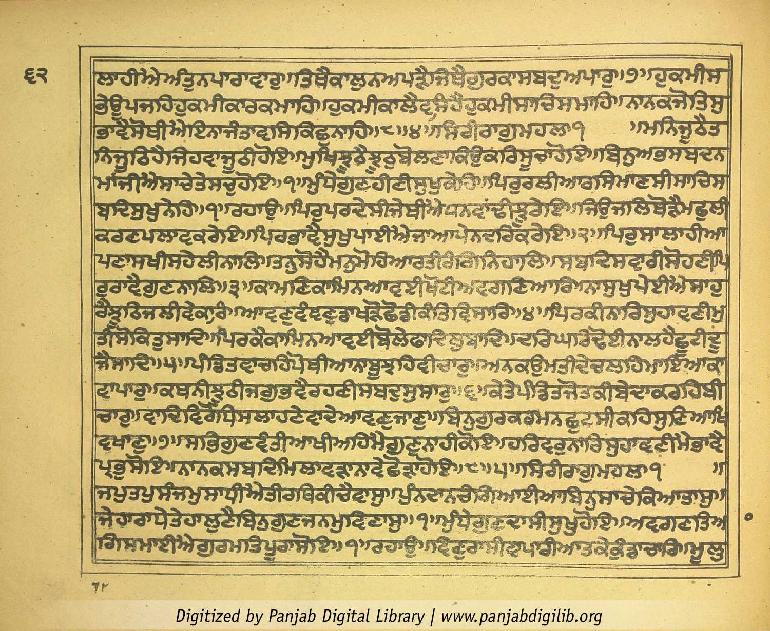 ੬੨
ਲਾਹੀਐਅੰਤੁਨਪਾਰਾਵਾਰੁ॥ਤਿਥੈਕਾਲੁਨਅਪੜੈਜਿਥੈਗੁਰਕਾਸਬਦੁਅਪਾਰੁ॥੭॥ਹੁਕਮੀਸ
ਭੇਊਪਜਹਿਹੁਕਮੀਕਾਰਕਮਾਹਿ॥ਹੁਕਮੀਕਾਲੈਵਸਿਹੈਹੁਕਮੀਸਾਚਿਸਮਾਹਿ॥ਨਾਨਕਜੋਤਿਸੁ
ਭਾਵੈਸੋਥੀਐਇਨਾਜੰਤਾਵਸਿਕਿਛੁਨਾਹਿ॥੮॥੪॥ਸਿਰੀਰਾਗੁਮਹਲਾ੧ ॥ਮਨਿਜੂਠੈਤ
ਨਿਜੂਠਿਹੈਜਿਹਵਾਜੂਠੀਹੋਇ॥ਮੁਖਿਝੂਠੈਝੂਠੁਬੋਲਣਾਕਿਉਕਰਿਸੂਚਾਹੋਇ॥ਬਿਨੁਅਭਸਬਦਨ
ਮਾਂਜੀਐਸਾਚੇਤੇਸਚੁਹੋਇ॥੧॥ਮੁੰਧੇਗੁਣਹੀਣੀਸੁਖੁਕੇਹਿ॥ਪਿਰੁਰਲੀਆਰਸਿਮਾਣਸੀਸਾਚਿਸ
ਬਦਿਸੁਖੁਨੇਹਿ॥੧॥ਰਹਾਉ॥ਪਿਰੁਪਰਦੇਸੀਜੇਥੀਐਧਨਵਾਂਢੀਝੂਰੇਇ॥ਜਿਉਜਲਿਥੋੜੈਮਛੁਲੀ
ਕਰਣਪਲਾਵਕਰੇਇ॥ਪਿਰਭਾਵੈਸੁਖੁਪਾਈਐਜਾਆਪੇਨਦਰਿਕਰੇਇ॥੨॥ਪਿਰੁਸਾਲਾਹੀਆ
ਪਣਾਸਖੀਸਹੇਲੀਨਾਲਿ॥ਤਨੁਸੋਹੈਮਨੁਮੋਹਿਆਰਤੀਰੰਗਿਨਿਹਾਲਿ॥ਸਬਦਿਸਵਾਰੀਸੋਹਣੀਪਿ
ਰੁਰਾਵੈਗੁਣਨਾਲਿ॥੩॥ਕਾਮਣਿਕਾਮਿਨਆਵਈਖੋਟੀਅਵਗਣਿਆਰਿ॥ਨਾਸੁਖੁਪੇਈਐਸਾਹੁ
ਰੈਝੂਠਿਜਲੀਵੇਕਾਰਿ॥ਆਵਣੁਵੰਞਣੁਡਾਖੜੋਛੋਡੀਕੰਤਿਵਿਸਾਰਿ॥੪॥ਪਿਰਕੀਨਾਰਿਸੁਹਾਵਣੀਮੁ
ਤੀਸੋਕਿਤੁਸਾਦਿ॥ਪਿਰਕੈਕਾਮਿਨਆਵਈਬੋਲੇਫਾਦਿਲੁਬਾਦਿ॥ਦਰਿਘਰਿਢੋਈਨਾਲਹੈਛੂਟੀਦੂ
ਜੈਸਾਦਿ॥੫॥ਪੰਡਿਤਵਾਚਹਿਪੋਥੀਆਨਾਬੂਝਹਿਵੀਚਾਰੁ॥ਅਨਕਉਮਤੀਦੇਚਲਹਿਮਾਇਆਕਾ
ਵਾਪਾਰੁ॥ਕਥਨੀਝੂਠੀਜਗੁਭਵੈਰਹਣੀਸਬਦੁਸੁਸਾਰੁ॥੬॥ਕੇਤੇਪੰਡਿਤਜੋਤਕੀਬੇਦਾਕਰਹਿਬੀ
ਚਾਰੁ॥ਵਾਦਿਵਿਰੋਧਿਸਲਾਹਣੇਵਾਦੇਆਵਣੁਜਾਣੁ॥ਬਿਨੁਗੁਰਕਰਮਨਛੁਟਸੀਕਹਿਸੁਣਿਆਖਿ
ਵਖਾਣੁ॥੭॥ਸਭਿਗੁਣਵੰਤੀਆਖੀਅਹਿਮੈਗੁਣੁਨਾਹੀਕੋਇ॥ਹਰਿਵਰੁਨਾਰਿਸੁਹਾਵਣੀਮੈਭਾਵੈ
ਪ੍ਰਭੁਸੋਇ॥ਨਾਨਕਸਬਦਿਮਿਲਾਵੜਾਨਾਵੇਛੋੜਾਹੋਇ॥੮॥੫॥ਸਿਰੀਰਾਗੁਮਹਲਾ੧ ॥
ਜਪੁਤਪੁਸੰਜਮੁਸਾਧੀਐਤੀਰਥਿਕੀਚੈਵਾਸੁ॥ਪੁੰਨਦਾਨਚੰਗਿਆਈਆਬਿਨੁਸਾਚੇਕਿਆਤਾਸੁ॥
ਜੇਹਾਰਾਧੇਤੇਹਾਲੁਣੈਬਿਨੁਗੁਣਜਨਮੁਵਿਣਾਸੁ॥੧॥ਮੁੰਧੇਗੁਣਦਾਸੀਸੁਖੁਹੋਇ॥ਅਵਗਣਤਿਆ
ਗਿਸਮਾਈਐਗੁਰਮਤਿਪੂਰਾਸੋਇ॥੧॥ਰਹਾਉ॥ਵਿਣੁਰਾਸੀਵਾਪਾਰੀਆਤਕੇਕੁੰਡਾਚਾਰਿ॥ਮੂਲੁ
Digitized by Panjab Digital Library | www.panjabdigilib.org